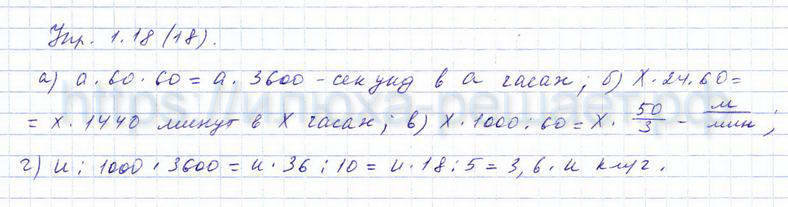 Упр. 1.18 (18).
а) a · 60 · 60 = a · 3600 - секунд в a часах; б) X · 24 · 60 =
= x · 1440 минут в X часах; в) X · 1000 : 60 = X · 50/3 - м/мин;
г) и : 1000 · 3600 = и · 36 : 10 = и · 18 : 5 = 3,6 · и км/г.
https://илюха-решает.рф